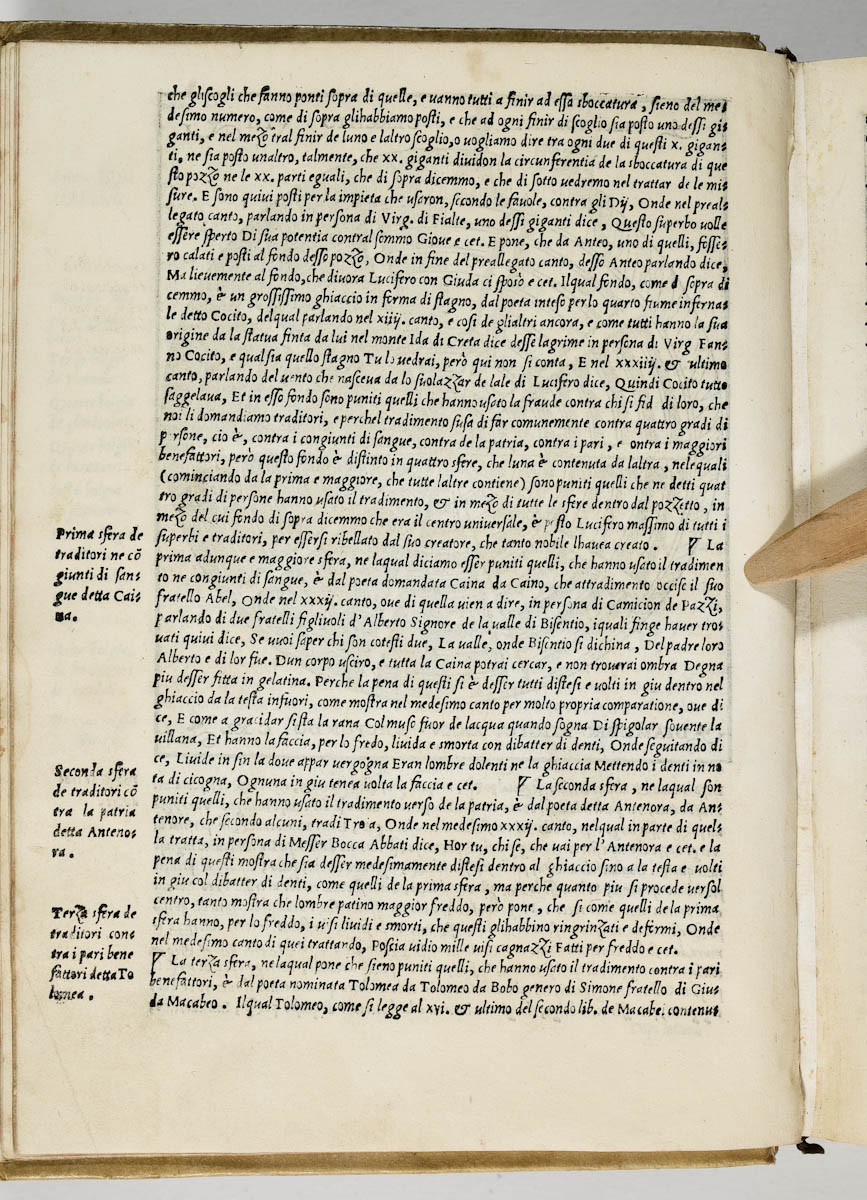 che gliscogli che fanno ponti sopra di quelle, e uanno tutti a finir ad essa sboccatura, sieno del me⸗
desimo numero, come di sopra glihabbiamo posti, e che ad ogni finir di scoglio sia posto uno dessi gi⸗
ganti, e nel mezo tral finir de luno e laltro scoglio, o uogliamo dire tra ogni due di questi x. gigan⸗
ti, ne sia posto unaltro, talmente, che xx. giganti diuidon la circunferentia de la sboccatura di que
sto pozzo ne le xx. parti eguali, che di sopra dicemmo, e che di sotto uedremo nel trattar de le mi⸗
sure. E sono quiui posti per la impieta che usaron, secondo le fauole, contra gli Dij, Onde nel preal⸗
legato canto, parlando in persona di Virg. di Fialte, uno dessi giganti dice, Questo superbo uolle
essere sperto Di sua potentia contral sommo Gioue e cet. E pone, che da Anteo, uno di quelli, fosse⸗
ro calati e posti al fondo desso pozzo, Onde in fine del preallegato canto, desso Anteo parlando dice,
Ma lieuemente al fondo, che diuora Lucifero con Giuda ci sposò e cet. Ilqual fondo, come d sopra di
cemmo, è un grossissimo ghiaccio in forma di stagno, dal poeta inteso per lo quarto fiume inferna⸗
le detto Cocito, delqual parlando nel xiiij. canto, e cosi de glialtri ancora, e come tutti hanno la sua
origine da la statua finta da lui nel monte Ida di Creta dice desse lagrime in persona di Virg Fan⸗
no Cocito, e qual sia quello stagno Tu lo uedrai, però qui non si conta, E nel xxxiiij. & ultimo
canto, parlando del uento che nasceua da lo suolazzar de lale di Lucifero dice, Quindi Cocito tutto
saggelaua, Et in esso fondo sono puniti quelli che hanno usato la fraude contra chi si fid di loro, che
noi li domandiamo traditori, e perchel tradimento susa di far comunemente contra quattro gradi di
persone, cio è, contra i congiunti di sangue, contra de la patria, contra i pari, e ontra i maggiori
benefattori, però questo fondo è distinto in quattro sfere, che luna è contenuta da laltra, nelequali
(cominciando da la prima e maggiore, che tutte laltre contiene) sono puniti quelli che ne detti quat
tro gradi di persone hanno usato il tradimento, & in mezo di tutte le sfere dentro dal pozzetto, in
mezo del cui fondo di sopra dicemmo che era il centro uniuersale, è posto Lucifero massimo di tutti i
superbi e traditori, per essersi ribellato dal suo creatore, che tanto nobile lhauea creato. ¶ La
Prima sfera de
traditori ne cō
giunti di san⸗
gue detta Cai⸗
na.
prima adunque e maggiore sfera, ne laqual diciamo esser puniti quelli, che hanno usato il tradimen
to ne congiunti di sangue, è dal poeta domandata Caina da Caino, che attradimento occise il suo
fratello Abel, Onde nel xxxij. canto, oue di quella uien a dire, in persona di Camicion de Pazzi,
parlando di due fratelli figliuoli d'Alberto Signore de la ualle di Bisentio, iquali finge hauer tro⸗
uati quiui dice, Se uuoi saper chi son cotesti due, La ualle, onde Bisentio si dichina, Del padre loro
Alberto e di lor fue. Dun corpo usciro, e tutta la Caina potrai cercar, e non trouerai ombra Degna
piu desser fitta in gelatina. Perche la pena di questi si è desser tutti distesi e uolti in giu dentro nel
ghiaccio da la testa infuori, come mostra nel medesimo canto per molto propria comparatione, oue di
ce, E come a gracidar si sta la rana Col muso fuor de lacqua quando sogna Di spigolar souente la
uillana, Et hanno la faccia, per lo fredo, liuida e smorta con dibatter di denti, Onde seguitando di
ce, Liuide in sin la doue appar uergogna Eran lombre dolenti ne la ghiaccia Mettendo i denti in no
ta di cicogna, Ognuna in giu tenea uolta la faccia e cet. ¶ La seconda sfera, ne laqual son
Seconda sfera
de traditori cō
tra la patria
detta Anteno⸗
ra.
puniti quelli, che hanno usato il tradimento uerso de la patria, è dal poeta detta Antenora, da An⸗
tenore, che secondo alcuni, tradi Troia, Onde nel medesimo xxxij. canto, nelqual in parte di quel⸗
la tratta, in persona di Messer Bocca Abbati dice, Hor tu, chi se, che uai per l'Antenora e cet. e la
pena di questi mostra che sia desser medesimamente distesi dentro al ghiaccio fino a la testa e uolti
in giu col dibatter di denti, come quelli de la prima sfera, ma perche quanto piu si procede uersol
centro, tanto mostra che lombre patino maggior freddo, però pone, che si come quelli de la prima
sfera hanno, per lo freddo, i uisi liuidi e smorti, che questi glihabbino ringrinzati e deformi, Onde
nel medesimo canto di quei trattando, Poscia uidio mille uisi cagnazzi Fatti per freddo e cet.
Terza sfera de
traditori con⸗
tra i pari bene
fattori detta To
lomea.
¶ La terza sfera, ne laqual pone che sieno puniti quelli, che hanno usato il tradimento contra i pari
benefattori, è dal poeta nominata Tolomea da Tolomeo da Bobo genero di Simone fratello di Giu⸗
da Macabeo. Ilqual Tolomeo, come si legge al xvi. & ultimo del secondo lib. de Macabei contenu⸗